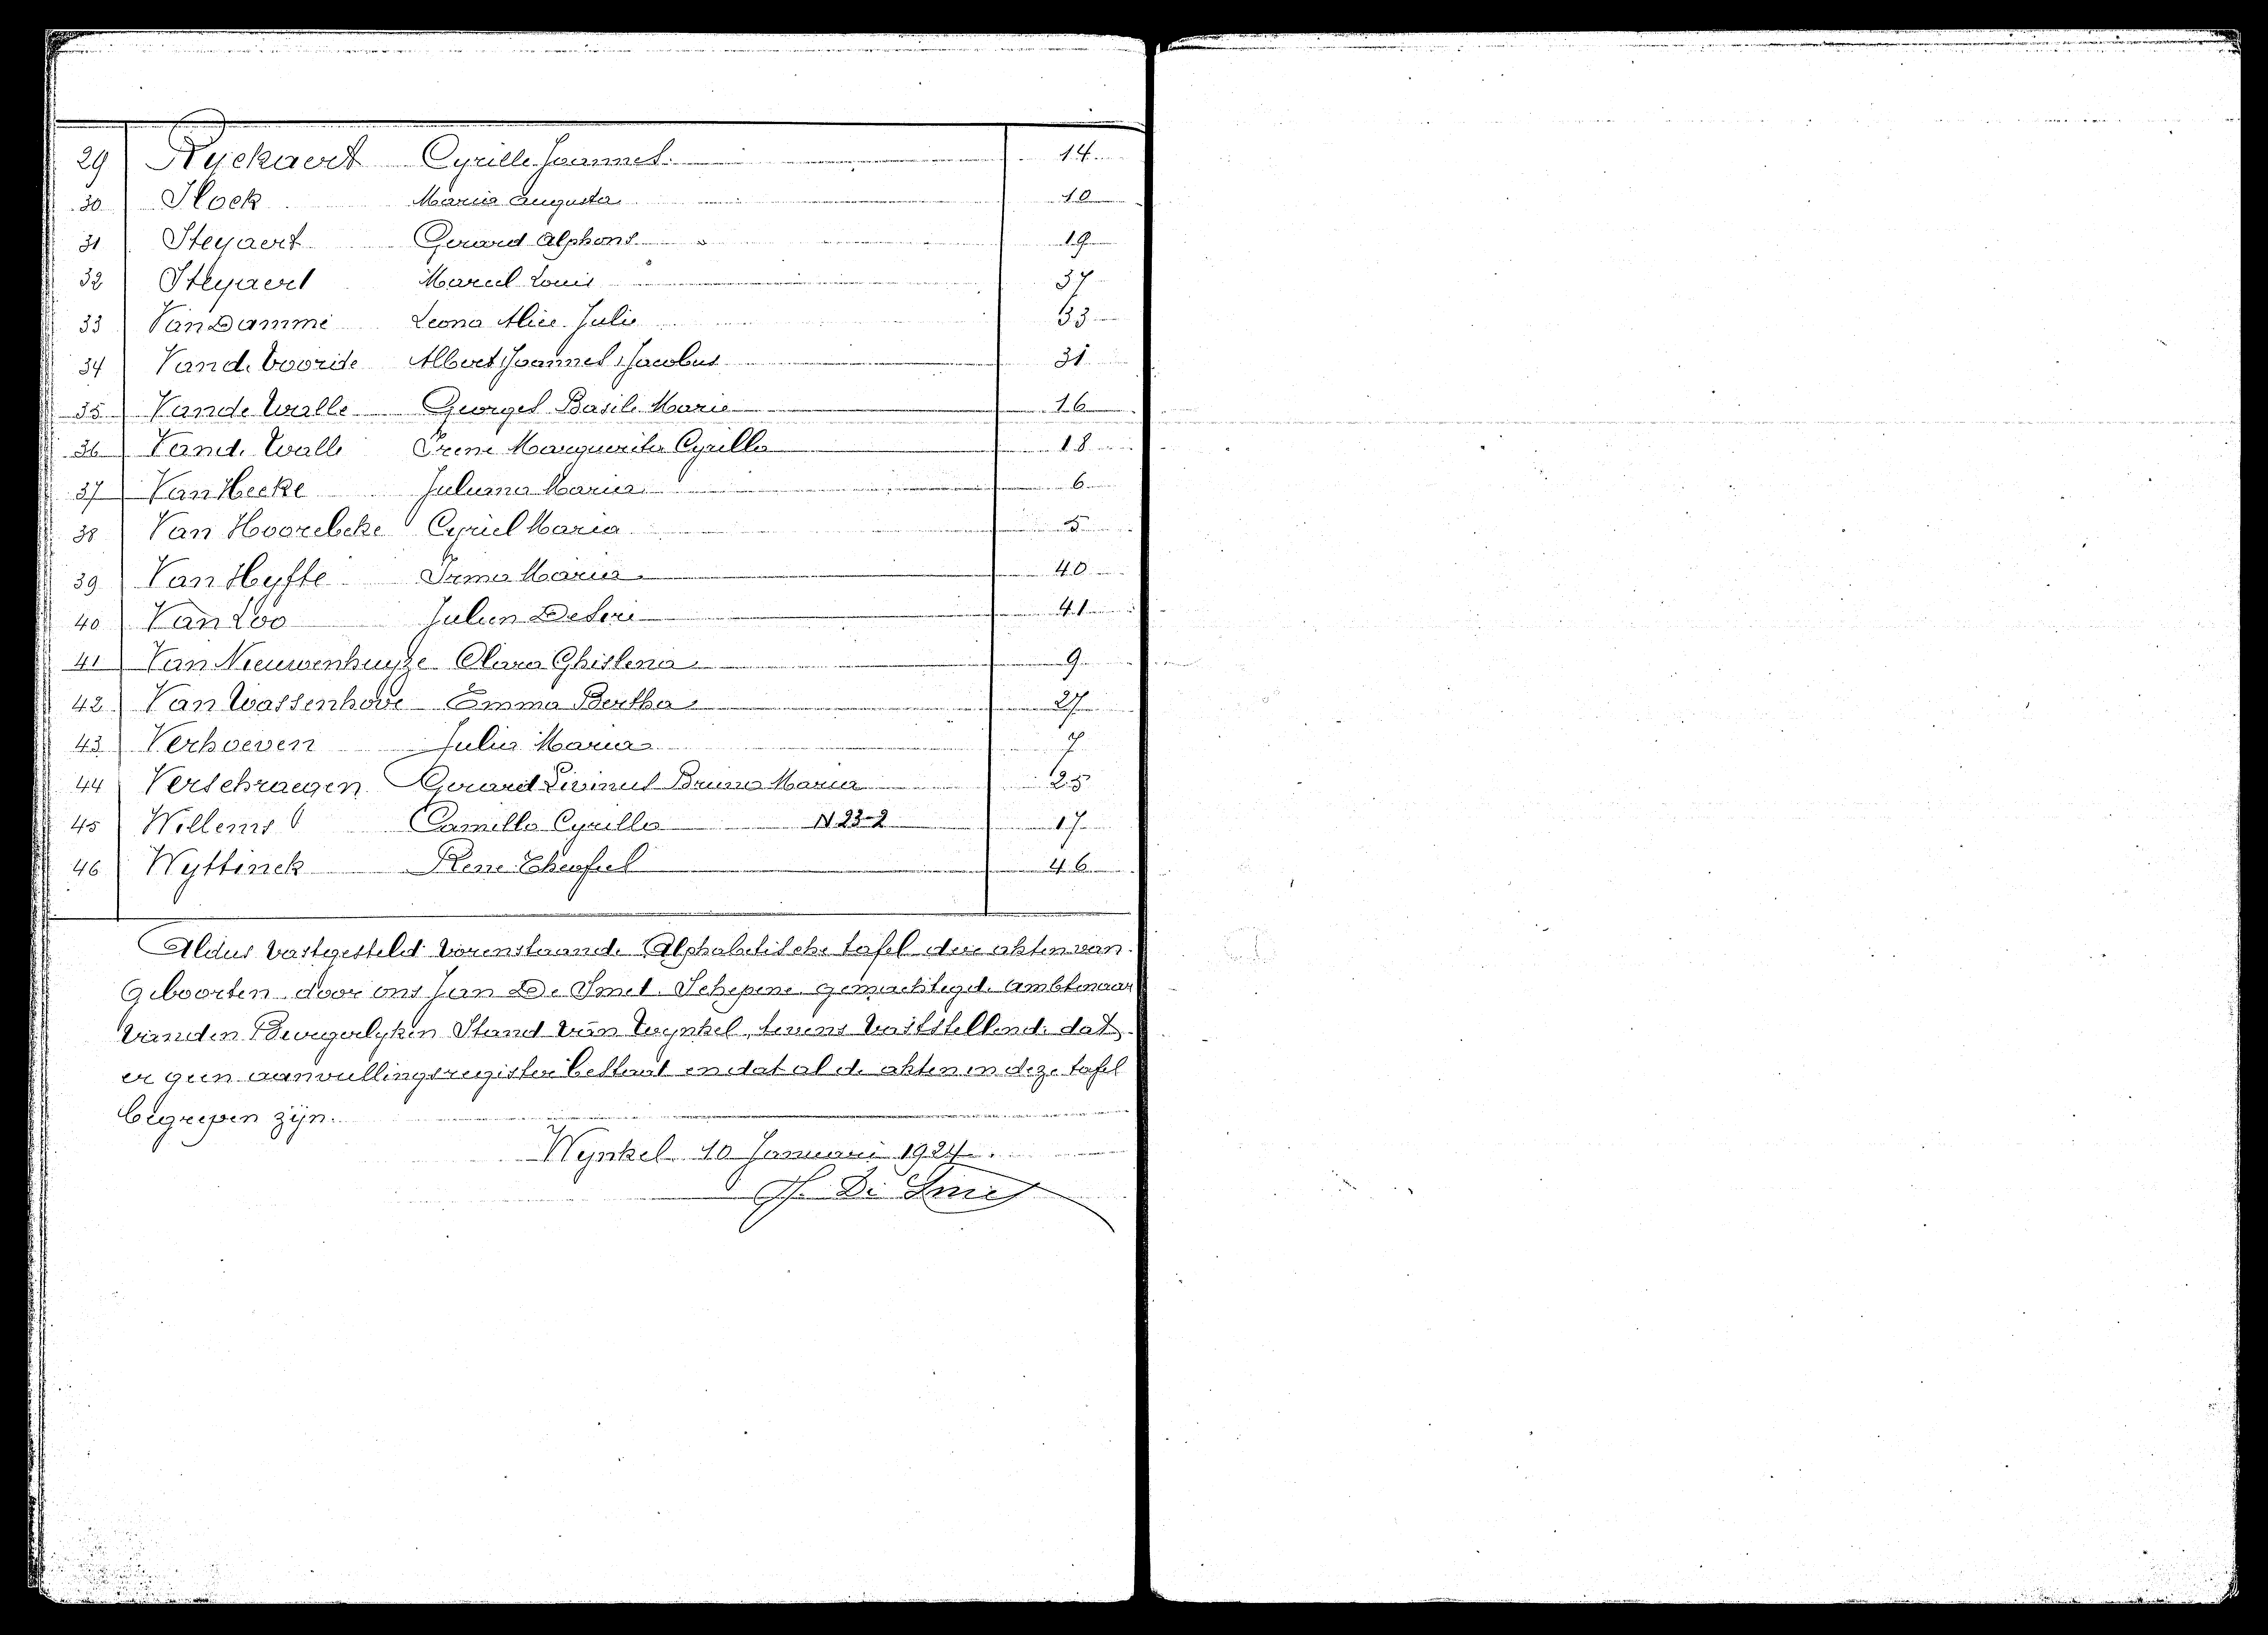 29 Ryckaert Cyrille Joannes 14
30 Stock Maria Augusta 10
31 Steyaert Gerard Alphons 19
32 Steyaert Marcel Louis 37
33 Van Damme Leona Alice Julie 33
34 Vande Voorde Albert Joannes Jacobus 31
35 Vande Walle Georges Basile Marie 16
36 Vande Walle Irene Marguerita Cyrilla 18
37 Van Hecke Juliana Maria 6
38 Van Hoorebeke Cyriel Maria 5
39 Van Hyfte Irma Maria 40
40 Van Loo Julien Desire 41
41 Van Nieuwenhuyze Clara Ghislena 9
42 Van Wassenhove Emma Bertha 27
43 Verhoeven Julia Maria 7
44 Verschraegen Gerard Livinus Bruno Maria 25
45 Willems Camilla Cyrilla N 23-2 17
46 Wyttinck Rene 46
Aldus vastgesteld vorenstaande Alphabetische tafel der akten van
Geboorten door ons Jan De Smet Schepene gemachtigde Ambtenaar
van den Burgerlyken Stand van Wynkel, tevens vaststellende dat
er geen aanvullingsregister bestaat en dat al de akten in deze tafel
begrepen zijn.
Wynkel 10 Januari 1924.
J. De Smet